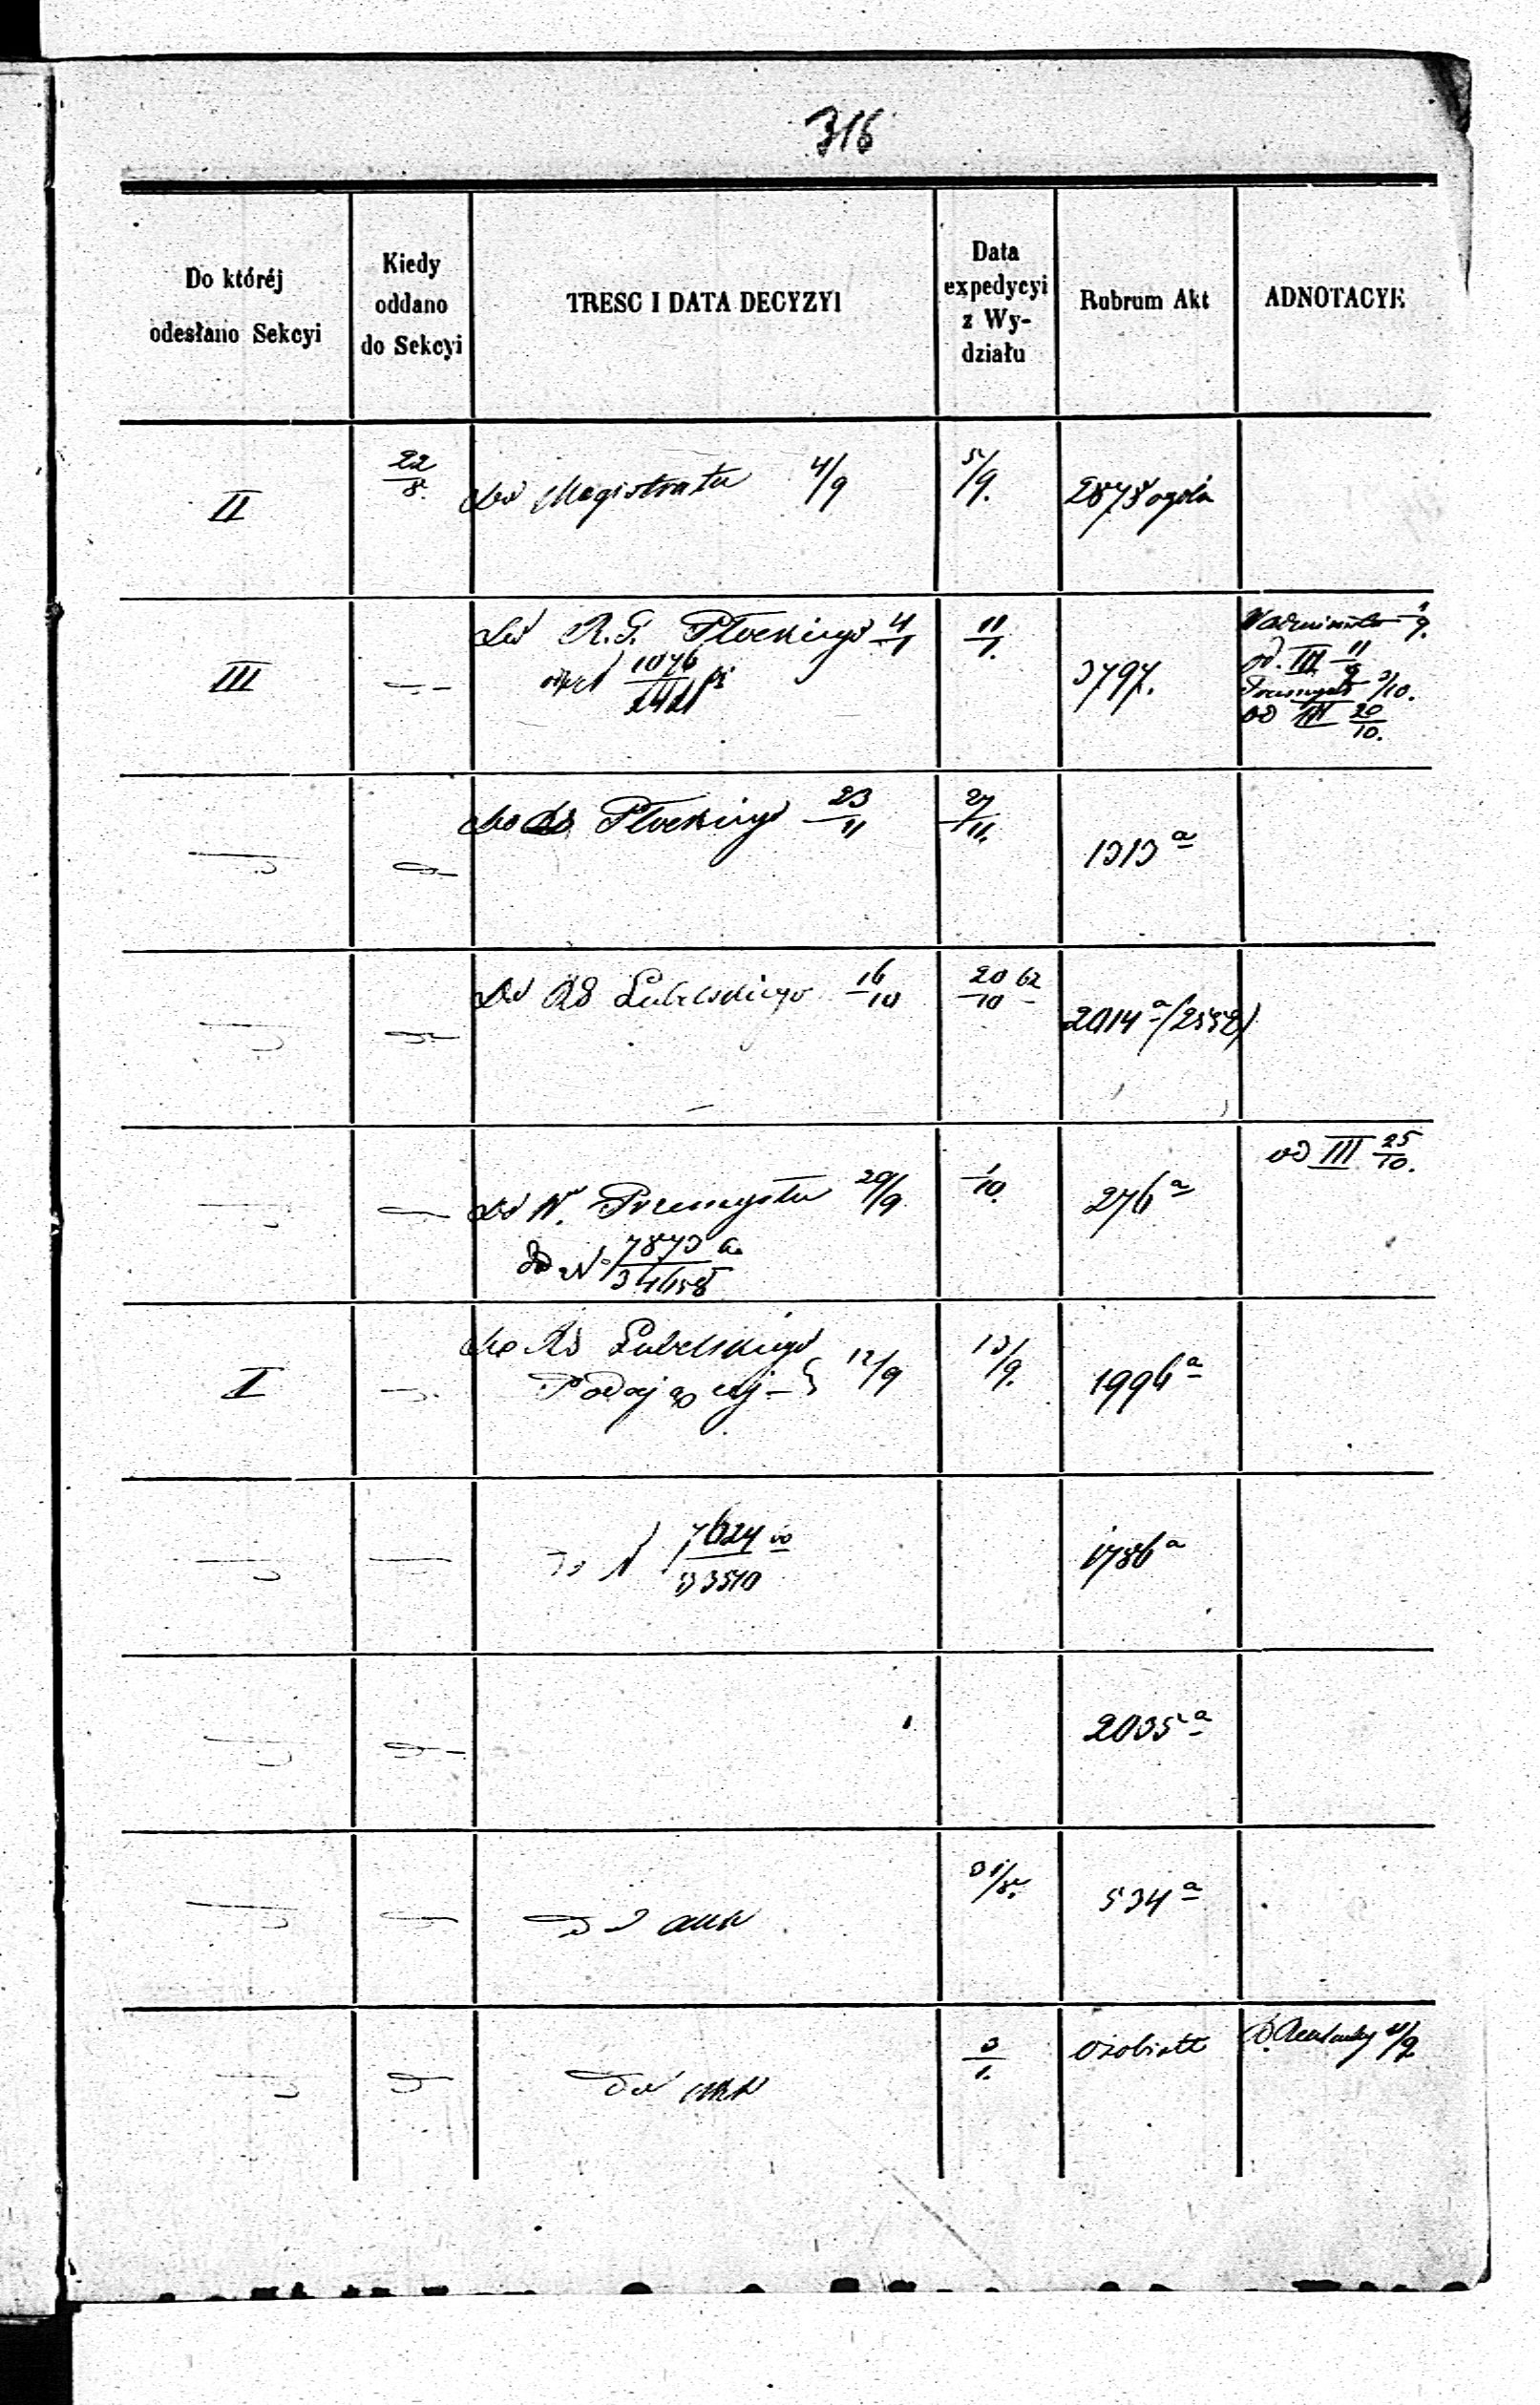 316
Do któréj
odesłano Sekcyi
Kiedy
oddano
do Sekcyi
TRESC I DATA DECYZYI
Data
expedycyi
z Wy-
działu
Rubrum Akt
ADNOTACYE
II
22/8.
Do Magistratu 4/9
5/9.
2878 ogóln
III
Do R. G. Płockiego 4/1
1076/2421
11/1.
3797.
od. III 11/9
Przemysłu 3/10.
od III 20/10.
Do RG Płockiego 23/11
27/11.
1313 a
Do RG Lubelskiego 16/10
20/10 62
2014 a (2552)
Do W. Przemysłu 29/9
do N° 7873/34658
1/10.
276 a
od III 25/10.
I
Do RG Lubelskiego
Podającej 12/9
13/9.
1996 a
do N 7624/33510
1786 a
2035 a
do akt
31/8.
534 a
do akt
3/1.
osobiste
4/9